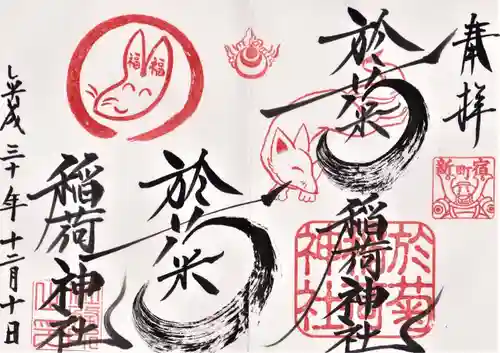 奉拝
新町宿
於菊
稲荷神社
於菊
稲荷
神社
福 福
於菊
稲荷神社
平成三十年十二月十日